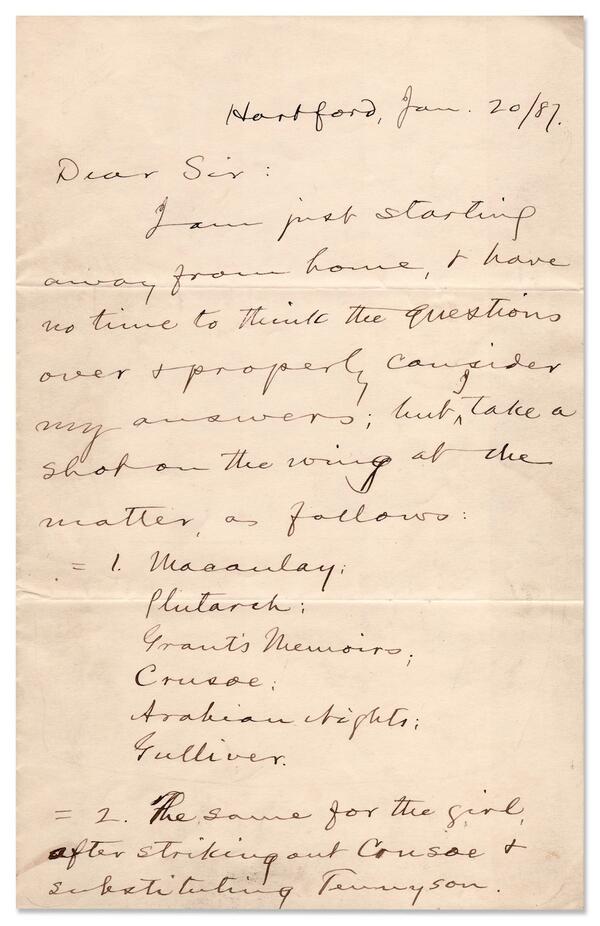 Hartford, Jan. 20/87.
Dear Sir:
I am just starting
away from home, & have
no time to think the questions
over & properly consider
my answers; but I take a
shot on the wing at the
matter, as follows:
= 1. Macaulay;
Plutarch;
Grant's Memoirs;
Crusoe;
Arabian Nights;
Gulliver.
= 2. The same for the girl,
after striking out Crusoe &
substituting Tennyson.